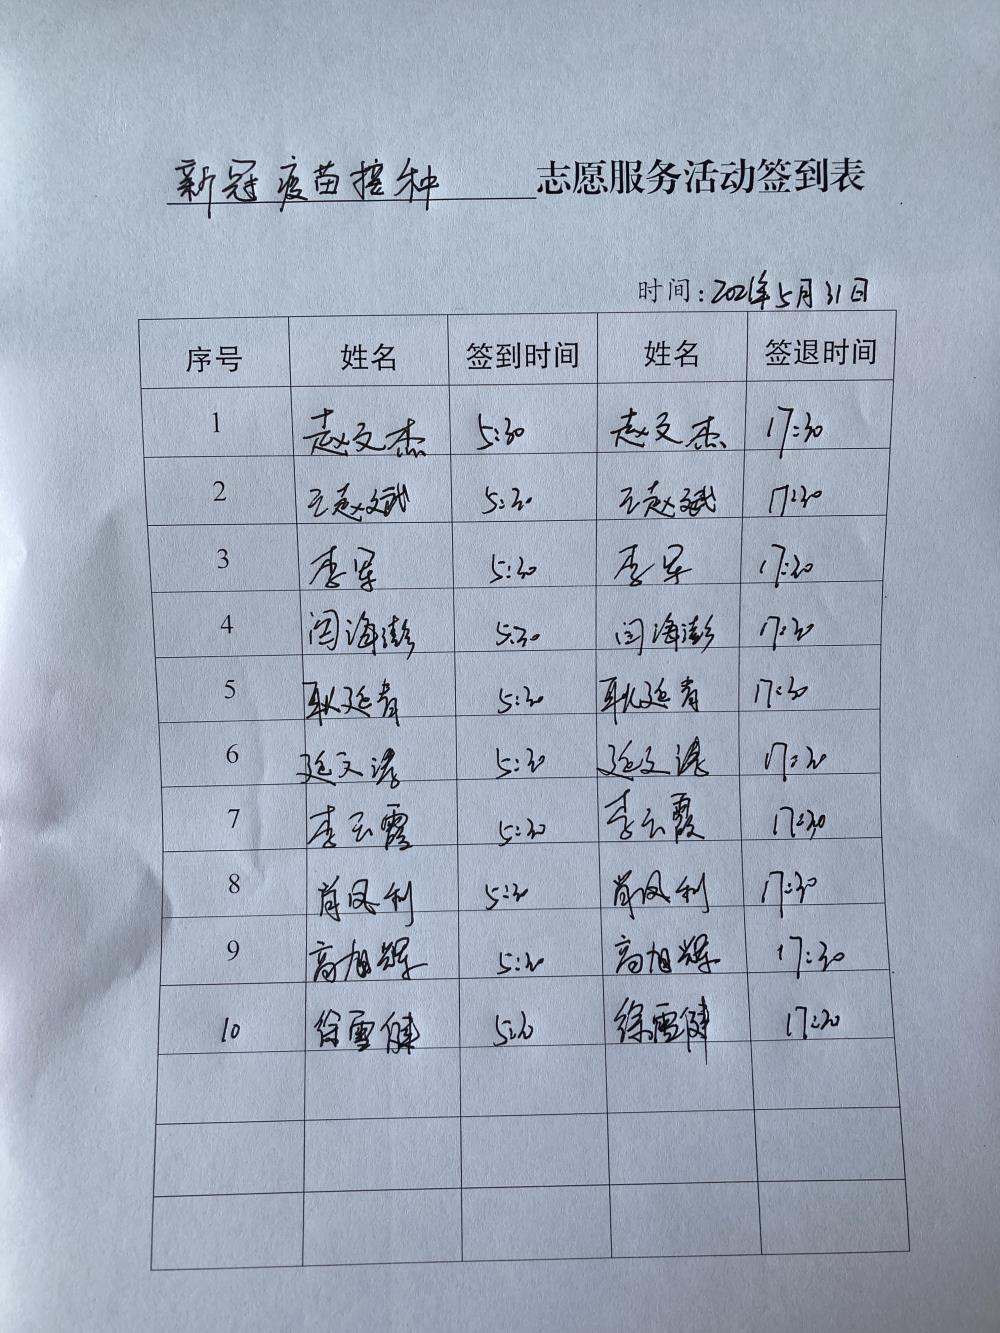 新冠疫苗接种 志愿服务活动签到表
时间：2021年5月31日
序号 姓名 签到时间 姓名 签退时间
1 赵文杰 5:30 赵文杰 17:30
2 王赵斌 5:30 王赵斌 17:30
3 李军 5:30 李军 17:30
4 闫海澎 5:30 闫海澎 17:30
5 耿延青 5:30 耿延青 17:30
6 5:30 17:30
7 李云霞 5:30 李云霞 17:30
8 肖凤利 5:30 肖凤利 17:30
9 高旭辉 5:30 高旭辉 17:30
10 徐雪健 5:30 徐雪健 17:30